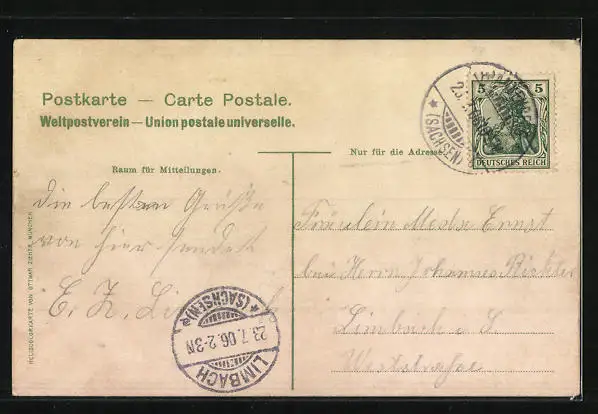 Postkarte — Carte Postale.
Weltpostverein — Union postale universelle.
Nur für die Adresse.
Raum für Mitteilungen.
5 5
DEUTSCHES REICH
* (SACHSEN)
die besten Grüße
von hier sendet
E. Z.
Fräulein Ernst
bei Herrn Johannes Richter
Limbach i. S.
Weststraße
LIMBACH
23.7.06.2-3N
* (SACHSEN) e
HELIOCOLORKARTE VON OTTMAR ZIEHER, MÜNCHEN